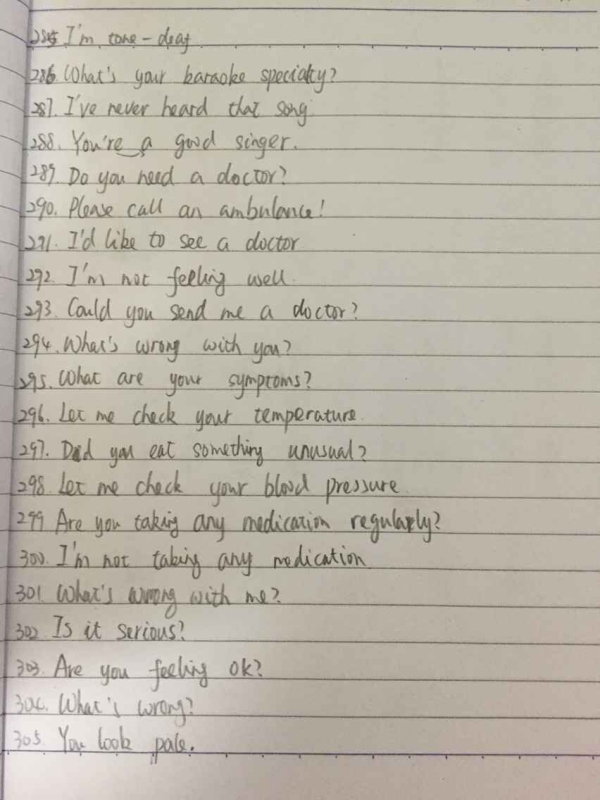 285 I'm tone-deaf
286. What's your karaoke specialty?
287. I've never heard that song
288. You're a good singer.
289. Do you need a doctor?
290. Please call an ambulance!
291. I'd like to see a doctor
292. I'm not feeling well.
293. Could you send me a doctor?
294. What's wrong with you?
295. What are your symptoms?
296. Let me check your temperature.
297. Did you eat something unusual?
298. Let me check your blood pressure.
299 Are you taking any medication regularly?
300. I'm not taking any medication
301. What's wrong with me?
302. Is it serious?
303. Are you feeling ok?
304. What's wrong?
305. You look pale.